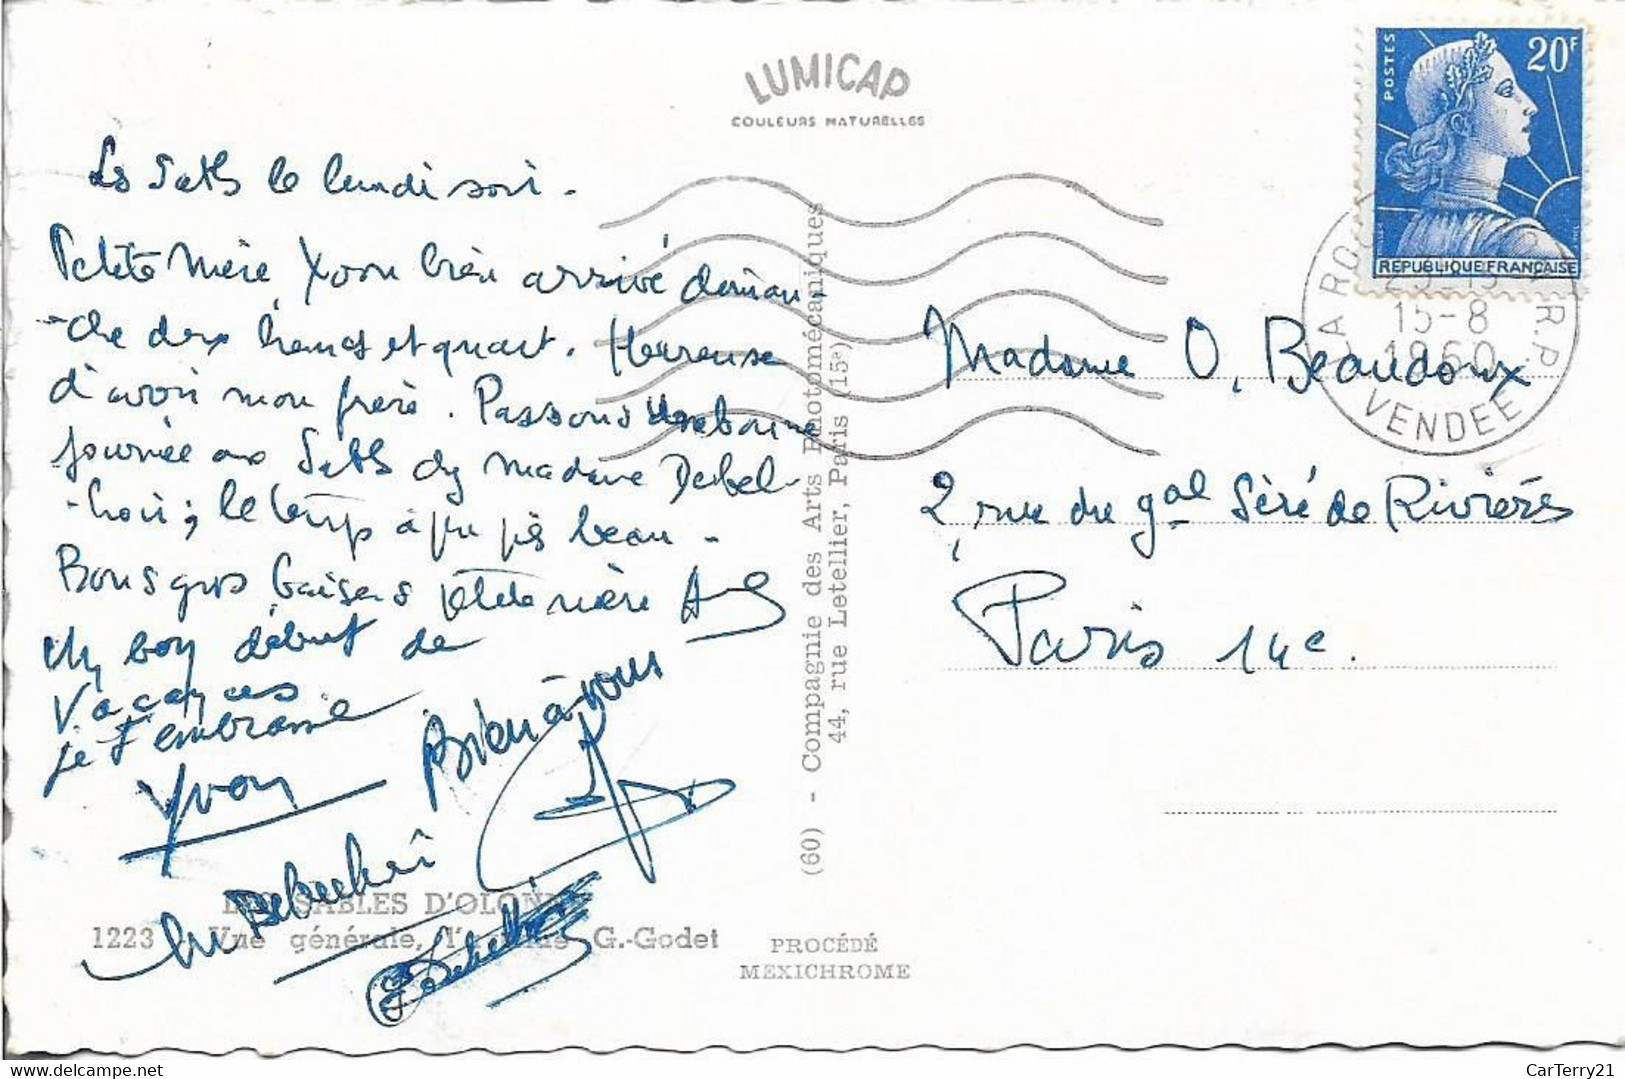 LUMICAP
COULEURS NATURELLES
Les Sables le lundi soir.
Petite Mère Yvon bien arrivé diman-
-che deux heures et quart. Heureuse
d'avoir mon frère. Passons une bonne
journée aux Sables chez madame Debel-
-hoir; le temps à peu près beau.
Bons gros baisers petite mère
bon début de
vacances
je t'embrasse
Yvon
Bien à vous
LES SABLES D'OLONNE
1223 Vue générale, G.-Godet
PROCÉDÉ
MEXICHROME
(60) - Compagnie des Arts Photomécaniques
44, rue Letellier, Paris (15e)
POSTES
20F
REPUBLIQUE FRANÇAISE
LA ROCHE R.P.
15-8
1960
VENDEE
Madame O. Beaudoux
2, rue du gal Séré de Rivières
Paris 14e.
CarTerry21
www.delcampe.net